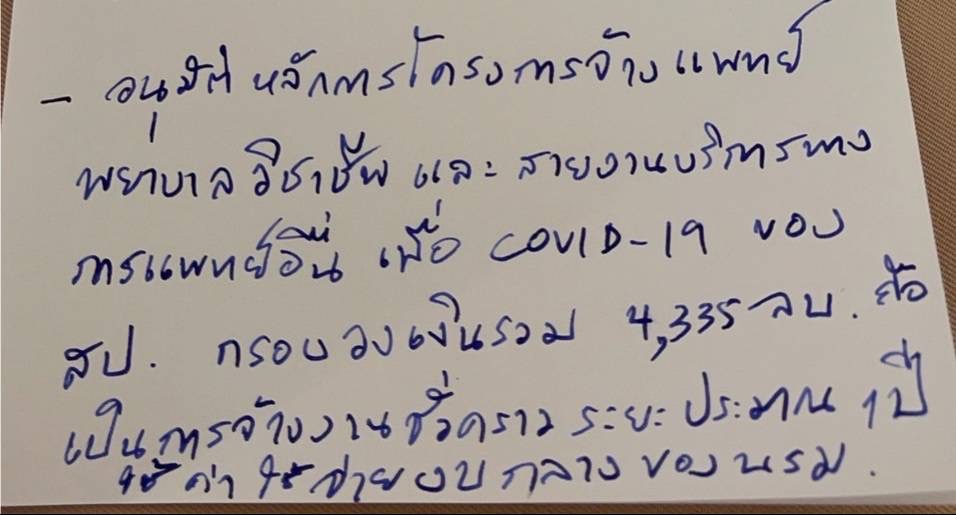 - อนุมัติ หลักการโครงการจ้างแพทย์
พยาบาลวิชาชีพ และ สายงานบริการทาง
การแพทย์อื่น เพื่อ COVID-19 ของ
สป. กรอบวงเงินรวม 4,335 ลบ. คือ
เป็นการจ้างงานชั่วคราว ระยะประมาณ 1 ปี
ใช้ ค่า ใช้จ่ายงบกลางของนรม.